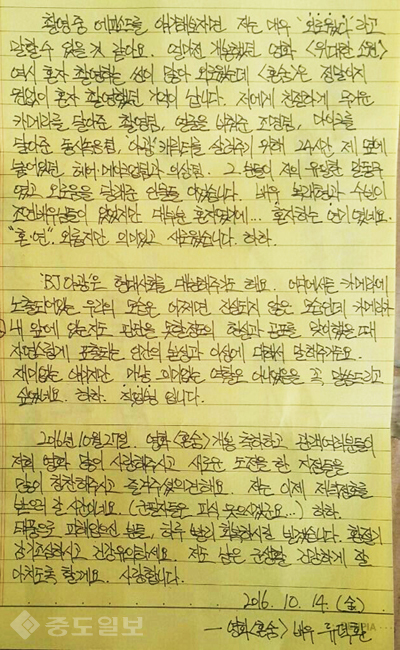 촬영 중 에피소드를 이야기해보자면 저는 매우 "외로웠다"라고
말할 수 있을 것 같아요. 얼마전 개봉했던 영화 <위대한 소원>
역시 혼자 촬영하는 씬이 많아 외로웠는데 <혼숨>은 정말이지
원없이 혼자 촬영했던 기억이 납니다. 저에게 친절하게 무거운
카메라를 달아준 촬영팀, 얼굴을 비춰준 조명팀, 마이크를
달아준 동시녹음팀, 야광 캐릭터를 살려주기 위해 24시간 제 옆에
붙어있던 헤어·메이크업팀과 의상팀. 그분들이 저의 유일한 말동무
였고 외로움을 달래준 인물들 이었습니다. 배우 복과 수많은
조연배우분들이 있었지만 대부분 혼자였기에... 혼자하는 연기였네요.
"혼·연". 외롭지만 의미있고 새로웠습니다. 하하.
'BJ야광'은 현대사회를 대변해주기도 해요. 어디에서든 카메라에
노출되어있는 우리의 모습은 어쩌면 진실되지 않은 모습인데 카메라가
내 앞에 있는지도 판단을 못할정도의 현실과 공포를 맞이했을 때
자연스럽게 표출되는 인간의 본성과 이성에 대해서 말해주거든요.
재미있는 이야기지만 마냥 의미없는 역할은 아니었음을 꼭 말씀드리고
싶었네요. 하하. 입니다.
2016년 10월 27일. 영화 <혼숨> 개봉 축하하고 관객여러분들이
저희 영화 많이 사랑해주시고 새로운 도전을 한 지점들을
많이 칭찬해주시고 즐겨주셨으면해요. 저는 이제 제식정화를
보러 갈 시간이네요 (군필자들은 피식 웃으셨겠군요...) 하하.
태풍으로 피해입으신 분들, 하루 빨리 회복하시길 빌겠습니다. 환절기
감기조심하시고 건강유의하세요. 저도 남은 군생활 건강하게 잘
마치도록 할게요. 사랑합니다.
2016. 10. 14. (金)
- 영화 <혼숨> 배우 류덕환
중도일보